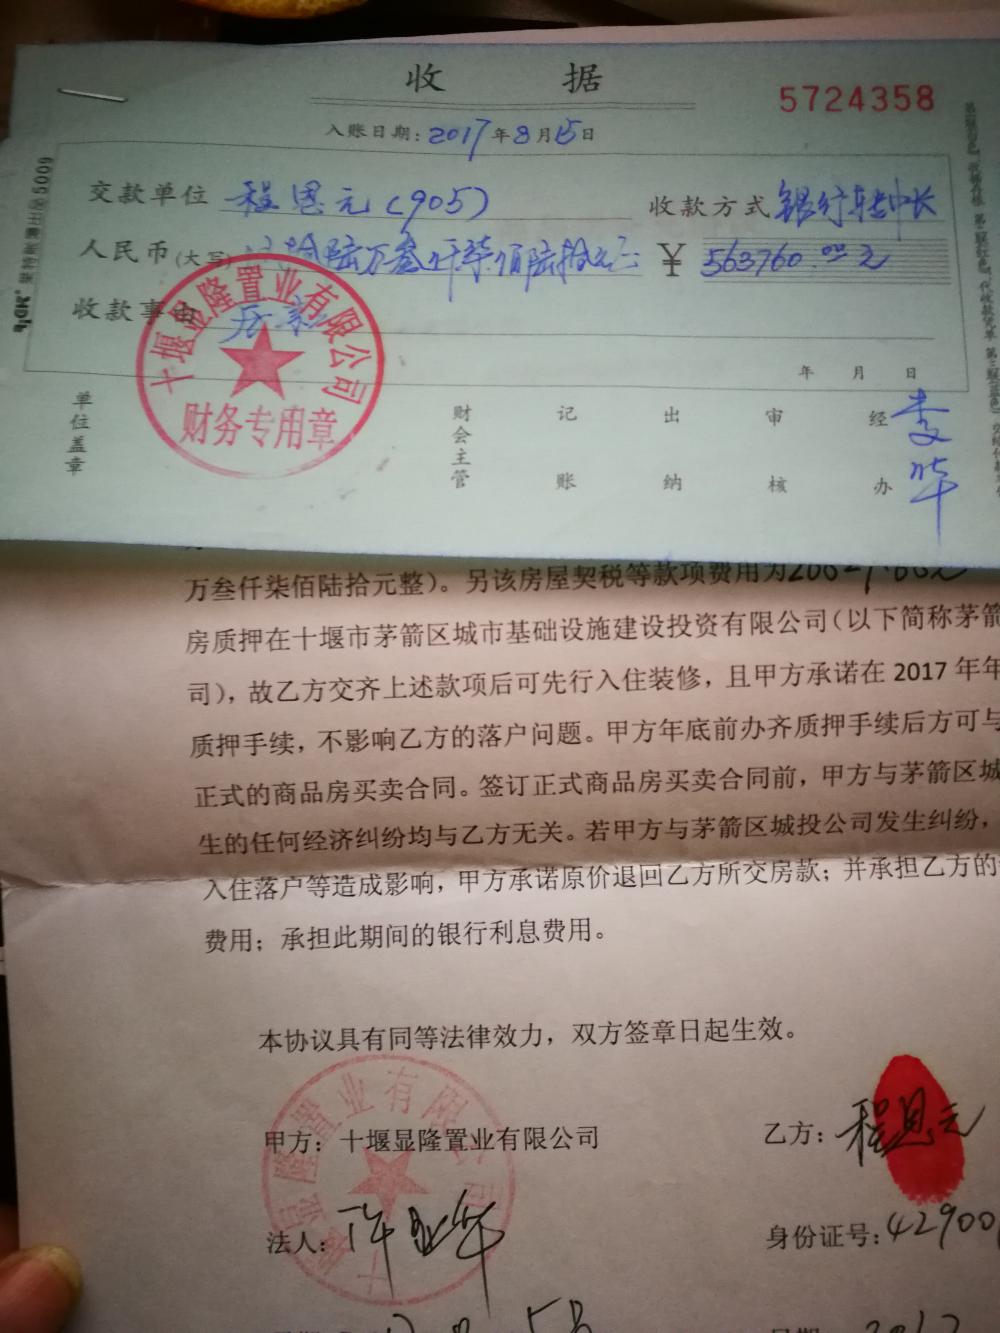 收 据
5724358
入账日期：2017年8月15日
交款单位 程恩元（905）
收款方式 银行转
人民币(大写) 拾陆万叁仟柒佰陆拾元
¥ 563760.00元
收款事由 房款
十堰显隆置业有限公司
财务专用章
年 月 日
单位盖章
财会主管
记账
出纳
审核
经办
李华
万叁仟柒佰陆拾元整）。另该房屋契税等款项费用为
房质押在十堰市茅箭区城市基础设施建设投资有限公司（以下简称茅箭
司），故乙方交齐上述款项后可先行入住装修，且甲方承诺在 2017 年年
质押手续，不影响乙方的落户问题。甲方年底前办齐质押手续后方可与
正式的商品房买卖合同。签订正式商品房买卖合同前，甲方与茅箭区城
生的任何经济纠纷均与乙方无关。若甲方与茅箭区城投公司发生纠纷，
入住落户等造成影响，甲方承诺原价退回乙方所交房款；并承担乙方的
费用；承担此期间的银行利息费用。
本协议具有同等法律效力，双方签章日起生效。
甲方：十堰显隆置业有限公司
乙方：程恩元
法人：
身份证号：42900